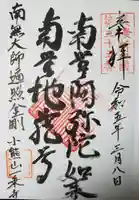 奉拝
令和五年三月八日
南無阿弥陀如来
南無地蔵尊
南無大師遍照金剛
小熊山